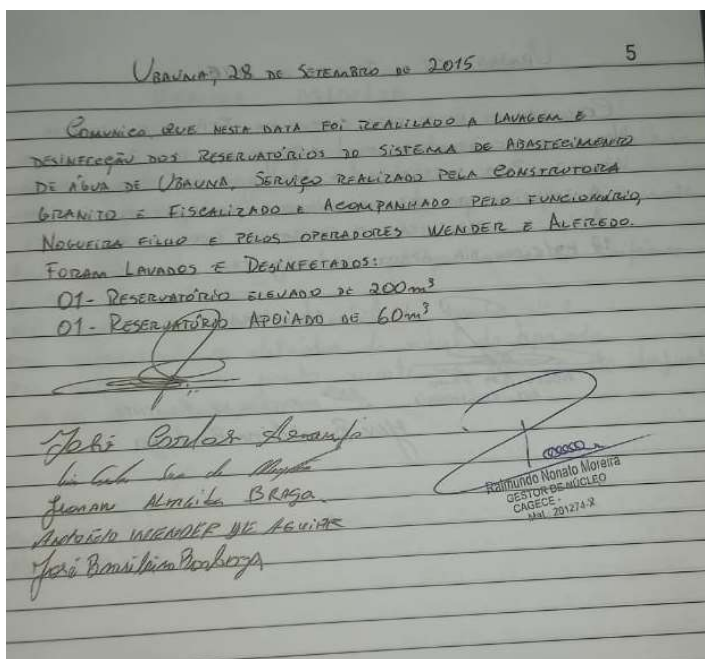 5
UBAUNA, 28 DE SETEMBRO DE 2015
COMUNICO QUE NESTA DATA FOI REALILADO A LAVAGEM E
DESINFECÇÃO DOS RESERVATÓRIOS DO SISTEMA DE ABASTECIMENTO
DE ÁGUA DE UBAUNA, SERVIÇO REALIZADO PELA CONSTRUTORA
GRANITO E FISCALIZADO E ACOMPANHADO PELO FUNCIONÁRIO,
NOGUEIRA FILHO E PELOS OPERADORES WENDER E ALFREDO.
FORAM LAVADOS E DESINFETADOS:
01- RESERVATÓRIO ELEVADO DE 200m³
01- RESERVATÓRIO APOIADO DE 60m³
José Carlos Araujo
Almeida BRAGA.
ANTONIO WENDER DE AGUIAR
José Brasileiro Barboza
Raimundo Nonato Moreira
GESTOR DE NÚCLEO
CAGECE -
Mat. 201274-X